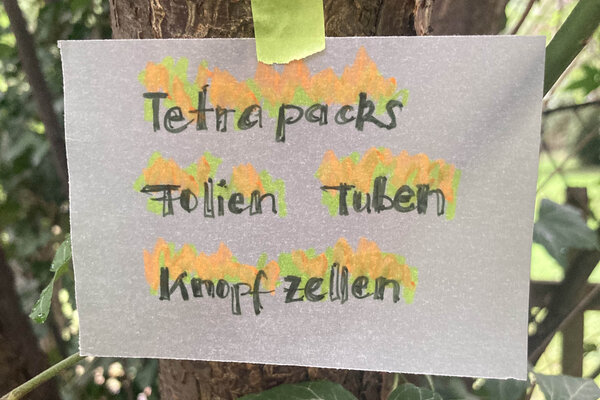 Tetrapacks
Folien Tuben
Knopfzellen